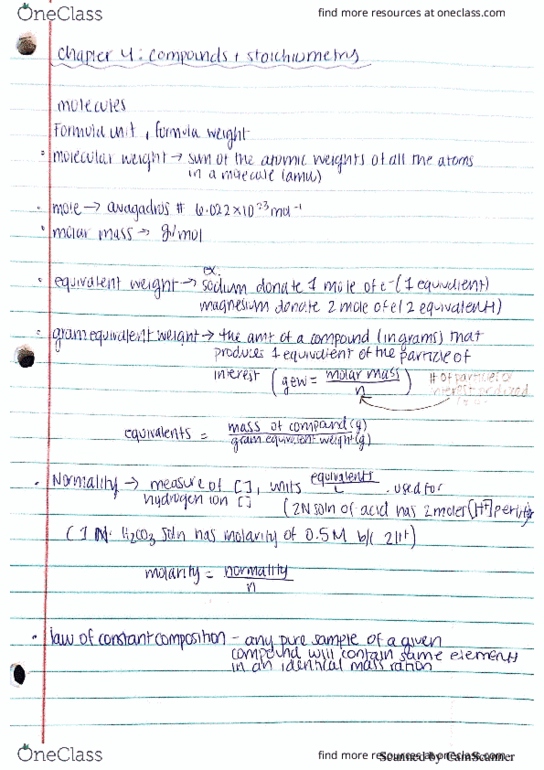 OneClass find more resources at oneclass.com
Chapter 4: compounds + stoichiometry
molecules
Formula unit, formula weight
molecular weight → sum of the atomic weights of all the atoms
in a molecule (amu)
mole → avagadros # 6.022×10²³ mol⁻¹
molar mass → g/mol
ex:
equivalent weight → sodium donate 1 mole of e⁻ (1 equivalent)
magnesium donate 2 mole of e (2 equivalent)
gram equivalent weight → the amt of a compound (in grams) that
produces 1 equivalent of the particle of
interest (gew = molar mass / n) # of particles of
interest
equivalents = mass of compound (g) / gram equivalent weight (g)
Normality → measure of [ ], units equivalents / L . used for
hydrogen ion [ ] (2N soln of acid has 2 moles [H⁺] per
(1 N H₂CO₃ soln has molarity of 0.5 M b/c 2H⁺)
molarity = normality / n
law of constant composition - any pure sample of a given
compound will contain same elements
in an identical mass ration
OneClass find more resources at oneclass.com
Scanned by CamScanner